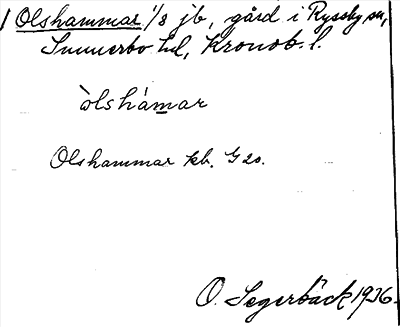 Olshammar 1/8 jb, gård i Ryssby sn,
Sunnerbo hd, Kronob. l.
òlshámar
Olshammar kb. G 20.
O. Segerbäck 1936.